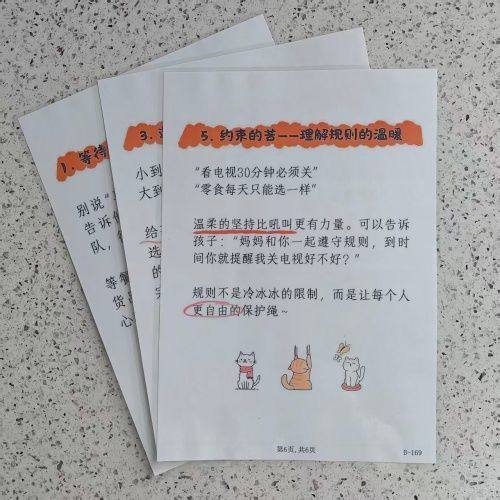 1. 等待
别说"
告诉
队,
等餐
货品
心
3.
小到
大到
给
选
的
5. 约束的苦——理解规则的温暖
"看电视30分钟必须关"
"零食每天只能选一样"
温柔的坚持比吼叫更有力量。可以告诉
孩子:"妈妈和你一起遵守规则,到时
间你就提醒我关电视好不好?"
规则不是冷冰冰的限制,而是让每个人
更自由的保护绳~
第6页,共6页
B-169